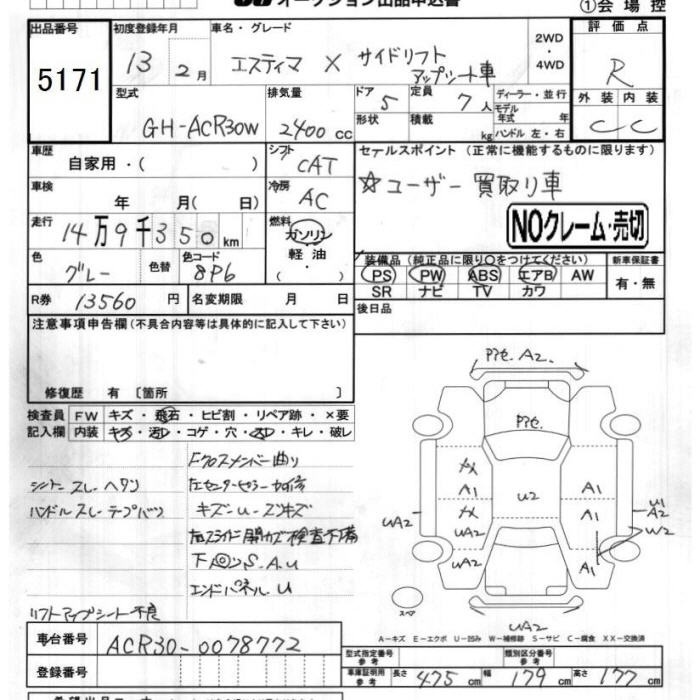 オークション出品申込書
①会場控
出品番号 初度登録年月 車名・グレード 評価点
5171 13 2月 エスティマ X サイドリフト アップシート車 2WD ・ 4WD R
型式 排気量 ドア 5 定員 7人 ディーラー・並行 外装 内装
GH-ACR30W 2400cc 形状 積載 kg モデル年式 年 ハンドル 左・右 C C
車歴 シフト セールスポイント (正常に機能するものに限ります)
自家用・( ) CAT
車検 年 月 ( 日) 冷房 AC ☆ユーザー買取り車
走行 14万9千350km 燃料 ガソリン 軽油・( ) NOクレーム・売切
色 グレー 色替 色コード 8P6 装備品 (純正品に限り○をつけてください) 新車保証書
PS PW ABS エアB AW 有・無
SR ナビ TV カワ
R券 13560円 名変期限 月 日 後日品
注意事項申告欄 (不具合内容等は具体的に記入して下さい)
修復歴 有 〔箇所 〕
検査員 FW キズ・飛石・ヒビ割・リペア跡・×要
記入欄 内装 キズ・汚レ・コゲ・穴・スレ・キレ・破レ
Fクロスメンバー曲り
シート スレ ヘタリ
ハンドル スレ
キズ・U・
下回りS.A.U
エンドパネルU
リフトアップシート不良
Pｷｾ. A2
Pｷｾ.
メX A1 A1
U2
メX UA2 A1
UA2 UA2 A1
U1 A2 W2
スペア
UA2
A-キズ E-エクボ U-凹み W-補修跡 S-サビ C-腐食 XX-交換済
車台番号 ACR30-0078772
登録番号
型式指定番号 参考 類別区分番号 参考
車庫証明用 参考 長さ 475 cm 幅 179 cm 高さ 177 cm